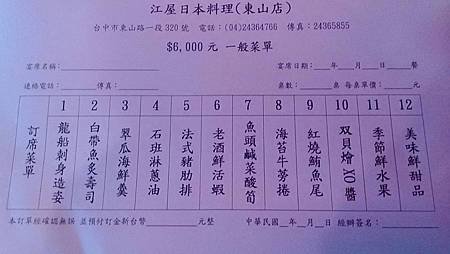 江屋日本料理(東山店)
台中市東山路一段320號 電話：(04)24364766 傳真：24365855
$6,000元 一般菜單
宴席名稱：
宴席日期：__年__月__日__餐
連絡電話：____傳真：____
桌數：____桌 每桌單價：____元
訂席菜單
1 龍船刺身造姿
2 白帶魚炙壽司
3 翠瓜海鮮羹
4 石班淋蔥油
5 法式豬肋排
6 老酒鮮活蝦
7 魚頭鹹菜酸筍
8 海苔牛蒡捲
9 紅燒鮪魚尾
10 双貝燴XO醬
11 季節鮮水果
12 美味鮮甜品
本訂單經確認無誤 並預付訂金新台幣____元整
中華民國__年__月__日 經辦簽名：____